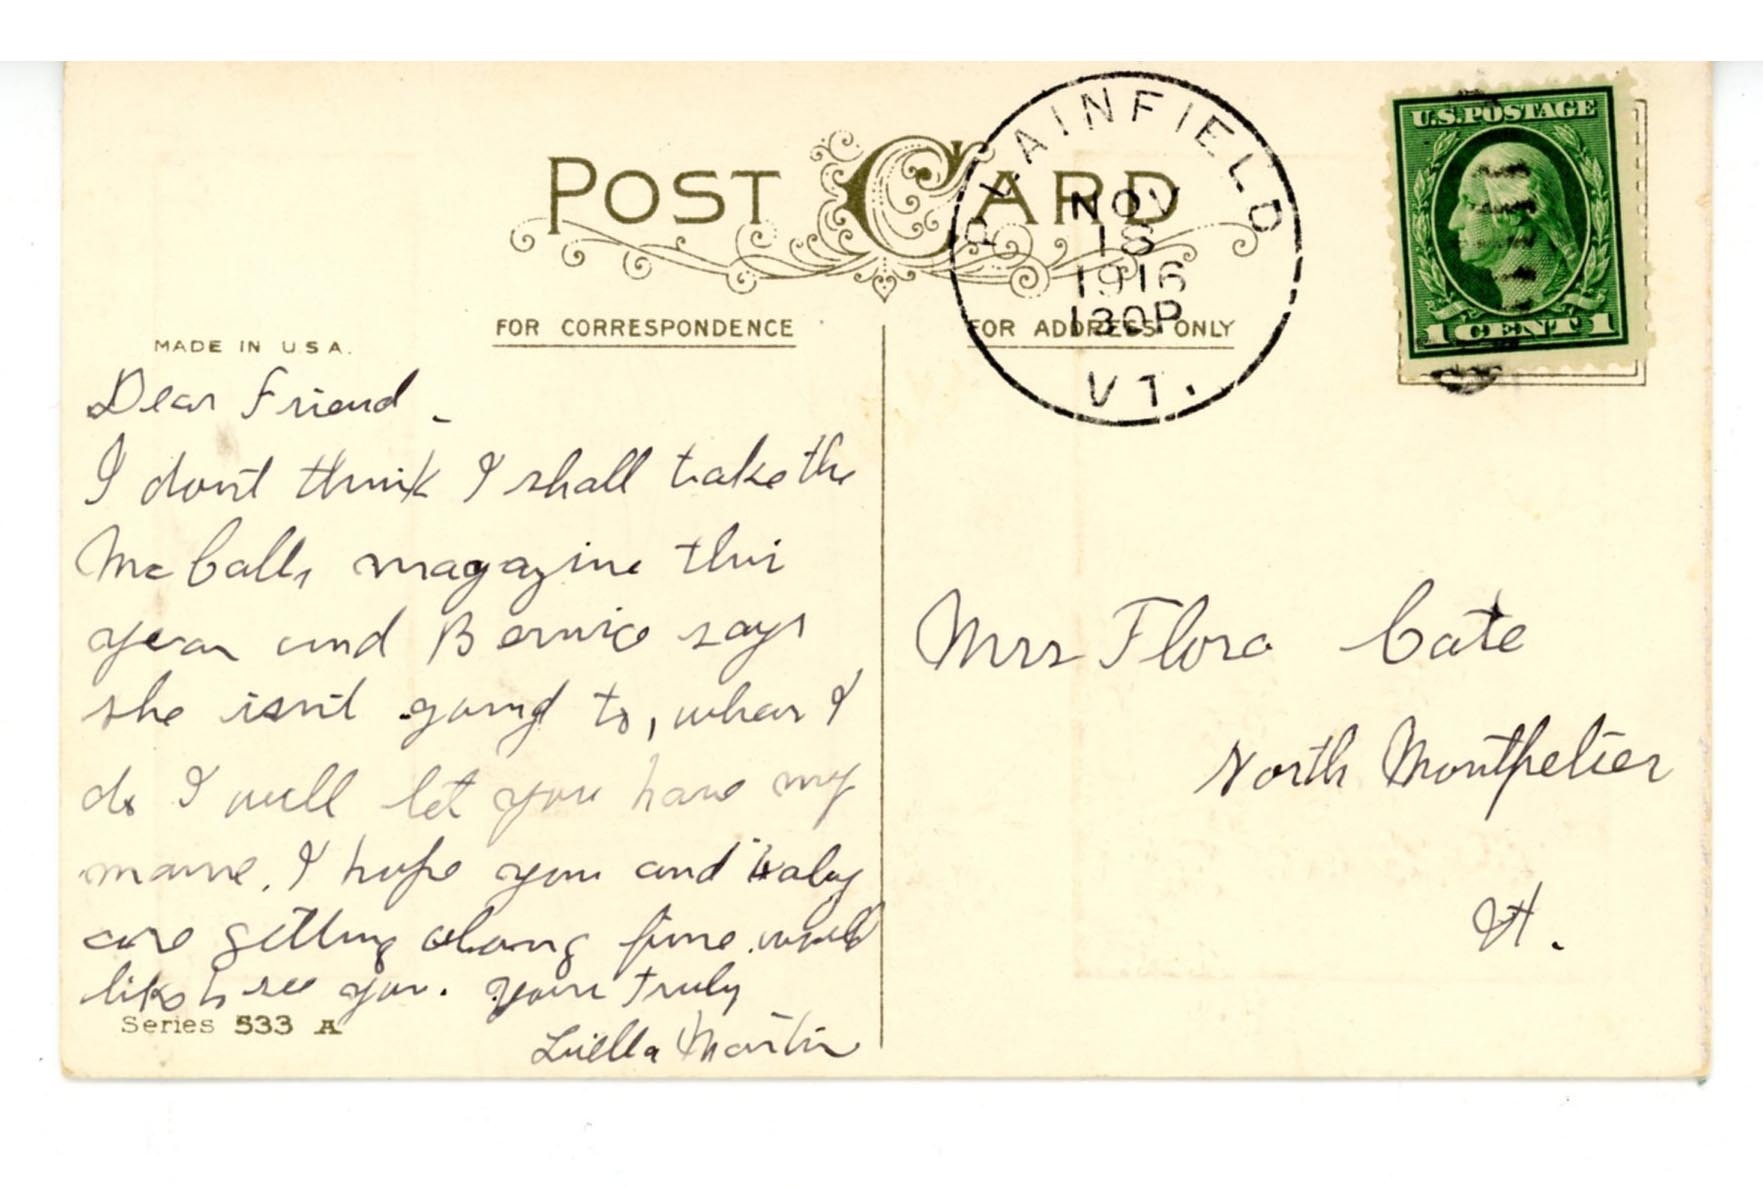 POST CARD
PLAINFIELD
NOV
18
1916
130P
VT.
U.S. POSTAGE
1 CENT 1
FOR CORRESPONDENCE
FOR ADDRESS ONLY
MADE IN U.S.A.
Dear Friend -
I don't think I shall take the
McCalls magazine this
year and Bernice says
she isn't going to, when I
do I will let you have my
mame. I hope you and baby
are getting along fine. would
like to see you. Yours truly
Luella Martin
Series 533 A
Mrs Flora Cate
North Montpelier
Vt.